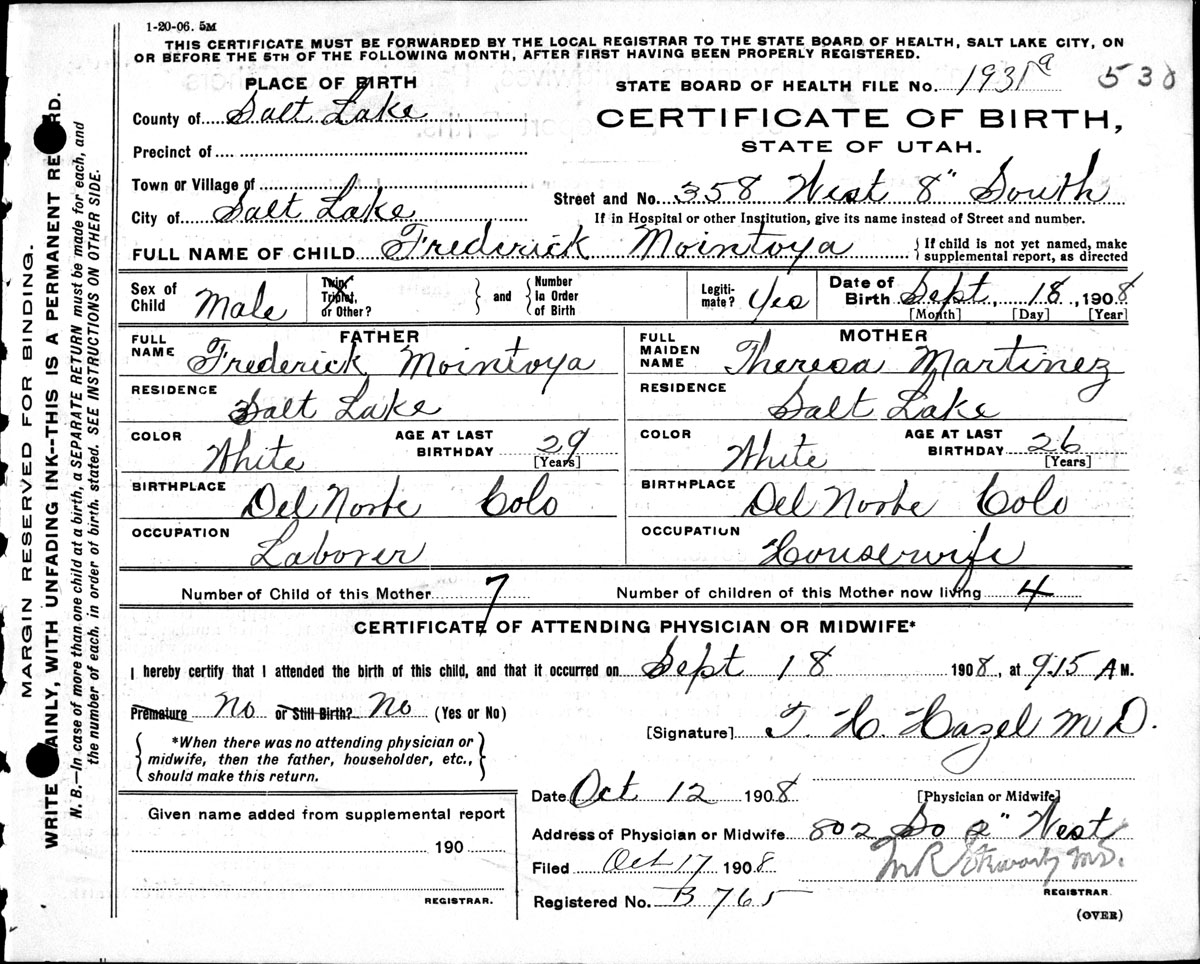 1-20-06. 5M
THIS CERTIFICATE MUST BE FORWARDED BY THE LOCAL REGISTRAR TO THE STATE BOARD OF HEALTH, SALT LAKE CITY, ON
OR BEFORE THE 5TH OF THE FOLLOWING MONTH, AFTER FIRST HAVING BEEN PROPERLY REGISTERED.
PLACE OF BIRTH
STATE BOARD OF HEALTH FILE No. 1931a 538
County of Salt Lake
CERTIFICATE OF BIRTH,
STATE OF UTAH.
Precinct of
Town or Village of
Street and No. 358 West 8" South
City of Salt Lake
If in Hospital or other Institution, give its name instead of Street and number.
FULL NAME OF CHILD Frederick Mointoya
{If child is not yet named, make
supplemental report, as directed
Sex of Child Male
Twin, Triplet, or Other?
and
Number In Order of Birth
Legiti-mate? Yes
Date of Birth Sept, 18, 1908
[Month] [Day] [Year]
FATHER
FULL NAME Frederick Mointoya
RESIDENCE
Salt Lake
COLOR White
AGE AT LAST BIRTHDAY 29
[Years]
BIRTHPLACE
Del Norte Colo
OCCUPATION
Laborer
MOTHER
FULL MAIDEN NAME Theresa Martinez
RESIDENCE
Salt Lake
COLOR White
AGE AT LAST BIRTHDAY 26
[Years]
BIRTHPLACE
Del Norte Colo
OCCUPATION
Housewife
Number of Child of this Mother 7
Number of children of this Mother now living 4
CERTIFICATE OF ATTENDING PHYSICIAN OR MIDWIFE*
I hereby certify that I attended the birth of this child, and that it occurred on Sept 18 1908, at 9.15 A M.
Premature No or Still Birth? No (Yes or No)
[Signature] T. H. Hazel M D.
{*When there was no attending physician or
midwife, then the father, householder, etc.,
should make this return.}
Date Oct 12 1908
[Physician or Midwife]
Given name added from supplemental report
190
REGISTRAR.
Address of Physician or Midwife 802 So 2" West
Filed Oct 17 1908
REGISTRAR
Registered No. B 765
(OVER)
MARGIN RESERVED FOR BINDING.
WRITE AINLY, WITH UNFADING INK--THIS IS A PERMANENT RE RD.
N. B.—In case of more than one child at a birth, a SEPARATE RETURN must be made for each, and
the number of each, in order of birth, stated. SEE INSTRUCTIONS ON OTHER SIDE.